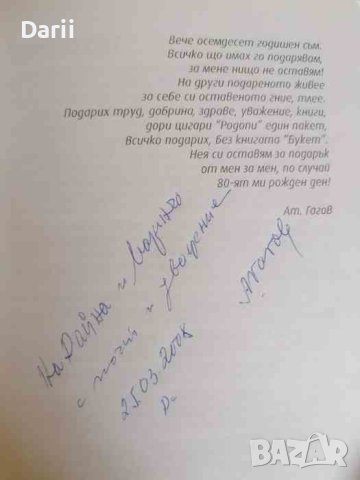 Darii
Вече осемдесет годишен съм.
Всичко що имах го подарявом,
за мене нищо не оставям!
На други подареното живее
за себе си оставеното гние, тлее.
Подарих труд, добрина, здраве, уважение, книги,
дори цигари "Родопи" един пакет,
Всичко подарих, без книгата "Букет".
Нея си оставям за подарък
от мен за мен, по случай
80-ят ми рожден ден!
Ат. Гагов
На Райна и Марин
с почит и уважение
25.03.2008
BAZAR.bg